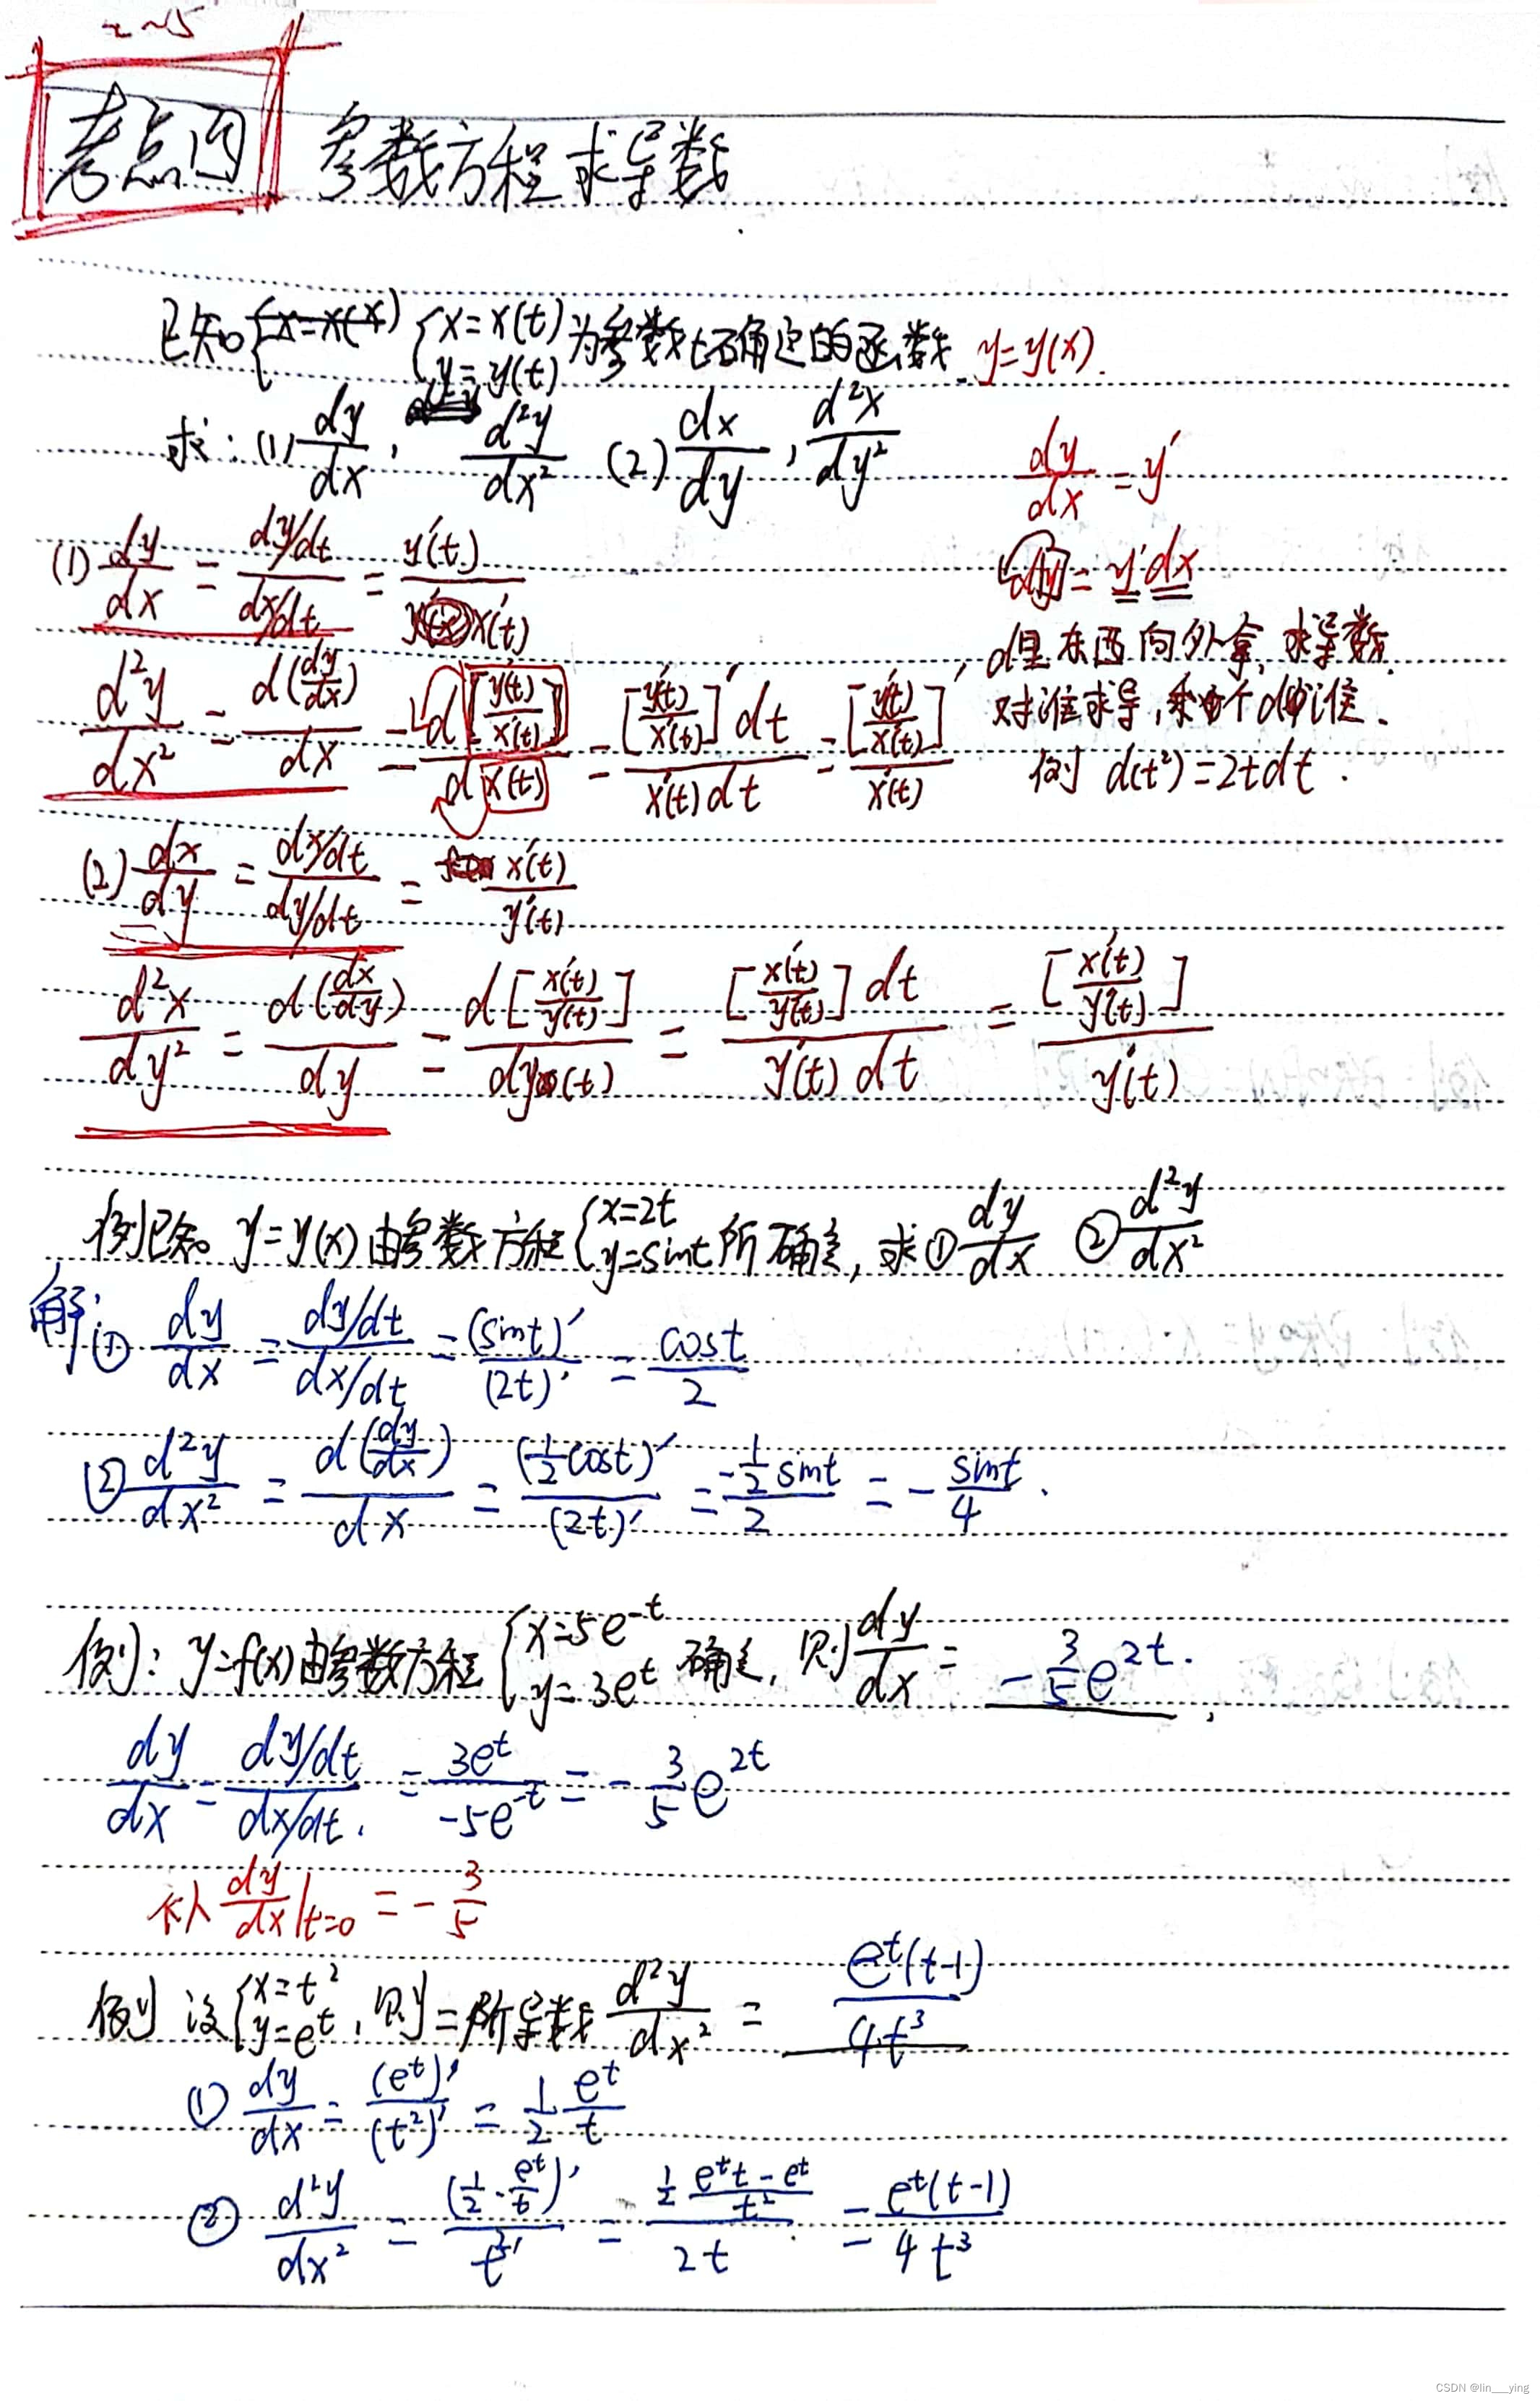 2~5
考点四 参数方程求导数
已知 { x=x(t) y=y(t) 为参数t确定的函数 y=y(x).
求: (1) dy/dx , d²y/dx² (2) dx/dy , d²x/dy²
dy/dx = y′
(1) dy/dx = (dy/dt)/(dx/dt) = y′(t)/x′(t)
dy = y′dx
d里东西向外拿, 求导数.
对谁求导, 乘个d谁.
例 d(t²)=2tdt.
d²y/dx² = d(dy/dx)/dx = d[y′(t)/x′(t)]/d x(t) = [y′(t)/x′(t)]′dt/x′(t)dt = [y′(t)/x′(t)]′/x′(t)
(2) dx/dy = (dx/dt)/(dy/dt) = x′(t)/y′(t)
d²x/dy² = d(dx/dy)/dy = d[x′(t)/y′(t)]/dy(t) = [x′(t)/y′(t)]dt/y′(t)dt = [x′(t)/y′(t)]/y′(t)
例 已知 y=y(x) 由参数方程 { x=2t y=sint 所确定, 求 ① dy/dx ② d²y/dx²
解: ① dy/dx = (dy/dt)/(dx/dt) = (sint)′/(2t)′ = cost/2
② d²y/dx² = d(dy/dx)/dx = (½cost)′/(2t)′ = -½sint/2 = -sint/4.
例: y=f(x) 由参数方程 { x=5e^-t y=3e^t 确定, 则 dy/dx = -3/5 e^2t.
dy/dx = (dy/dt)/(dx/dt) = 3e^t/-5e^-t = -3/5 e^2t
dy/dx|t=0 = -3/5
例 设 { x=t² y=e^t , 则二阶导数 d²y/dx² = e^t(t-1)/4t³
① dy/dx = (e^t)′/(t²)′ = 1/2 e^t/t
② d²y/dx² = (1/2 · e^t/t)′/t²′ = (1/2 (e^t t - e^t)/t²)/2t = e^t(t-1)/4t³
CSDN @lin___ying